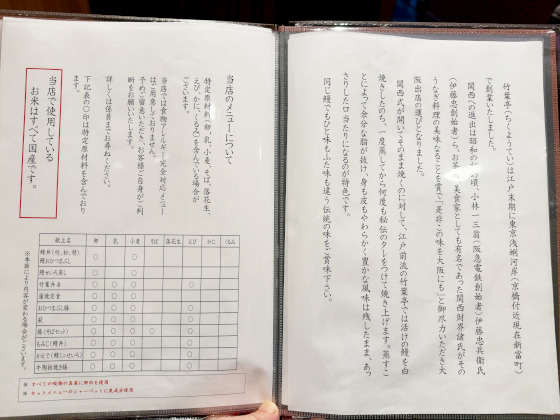 竹葉亭(ちくようてい)は江戸末期に東京浅蜊河岸(京橋付近現在新富町)
で創業いたしました。
関西への進出は昭和の
の頃、小林一三翁(阪急電鉄創始者)伊藤忠兵衛氏、
(伊藤忠創始者)ら、お茶
美食家としても有名であった関西財界諸氏がその
うなぎ料理の美味なることを賞で「是非この味を大阪にも」と御尽力いただき大
阪出店の運びとなりました。
関西式が開いてそのまま焼くのに対して、江戸前流の竹葉亭では活けの鰻を白
焼きしたのち、一度蒸してから何度も秘伝のタレをつけて焼き上げます。蒸すこ
とによって余分な脂が抜け、身も皮もやわらかく豊かな風味は残したまま、あっ
さりした口当たりになるのが特色です。
同じ鰻でもひと味もふた味も違う伝統の味をご賞味下さい。
当店のメニューについて
特定原材料(卵、乳、小麦、そば、落花生、
えび、かに、くるみ)を含んでいる場合が
ございます。
当店では食物アレルギー完全対応メニュー
はご用意しておりません。
予めご留意いただき、お客様ご自身がご判
断をお願いいたします。
詳しくは係員までお尋ねください。
下記表の○印は特定原材料を含んでおり
ます。
当店で使用している
お米はすべて国産です。
献立名 卵 乳 小麦 そば 落花生 えび かに くるみ
鰻丼(竹、松、特) 鰻おひつまぶし ○ ○
鰻せいろ蒸し ○ ○
竹葉弁当 ○ ○ ○ ○
蓮焼定食 ○ ○ ○
おひつまぶし膳 ○ ○ ○
萩 ○ ○ ○ ○
藤(そばセット) ○ ○ ○ ○ ○
もみじ(鰻丼) ○ ○ ○
かえで(鰻ミニせいろ) ○ ○ ○
牛陶板焼き膳 ○ ○ ○ ○
※季節により内容が変わる場合がございます。
※ すべての吸物の真薯に卵白を使用
※ セットメニューのシャーベットに乳成分使用